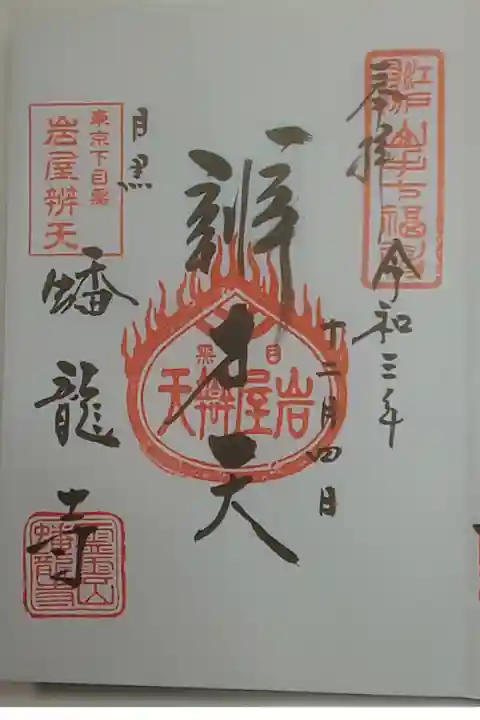 江戸山ノ手七福神
奉拝
令和三年
十二月四日
辨才天
目黒
岩屋辨天
目黒
蟠龍寺
東京下目黒
岩屋辨天
霊雲山
蟠龍寺